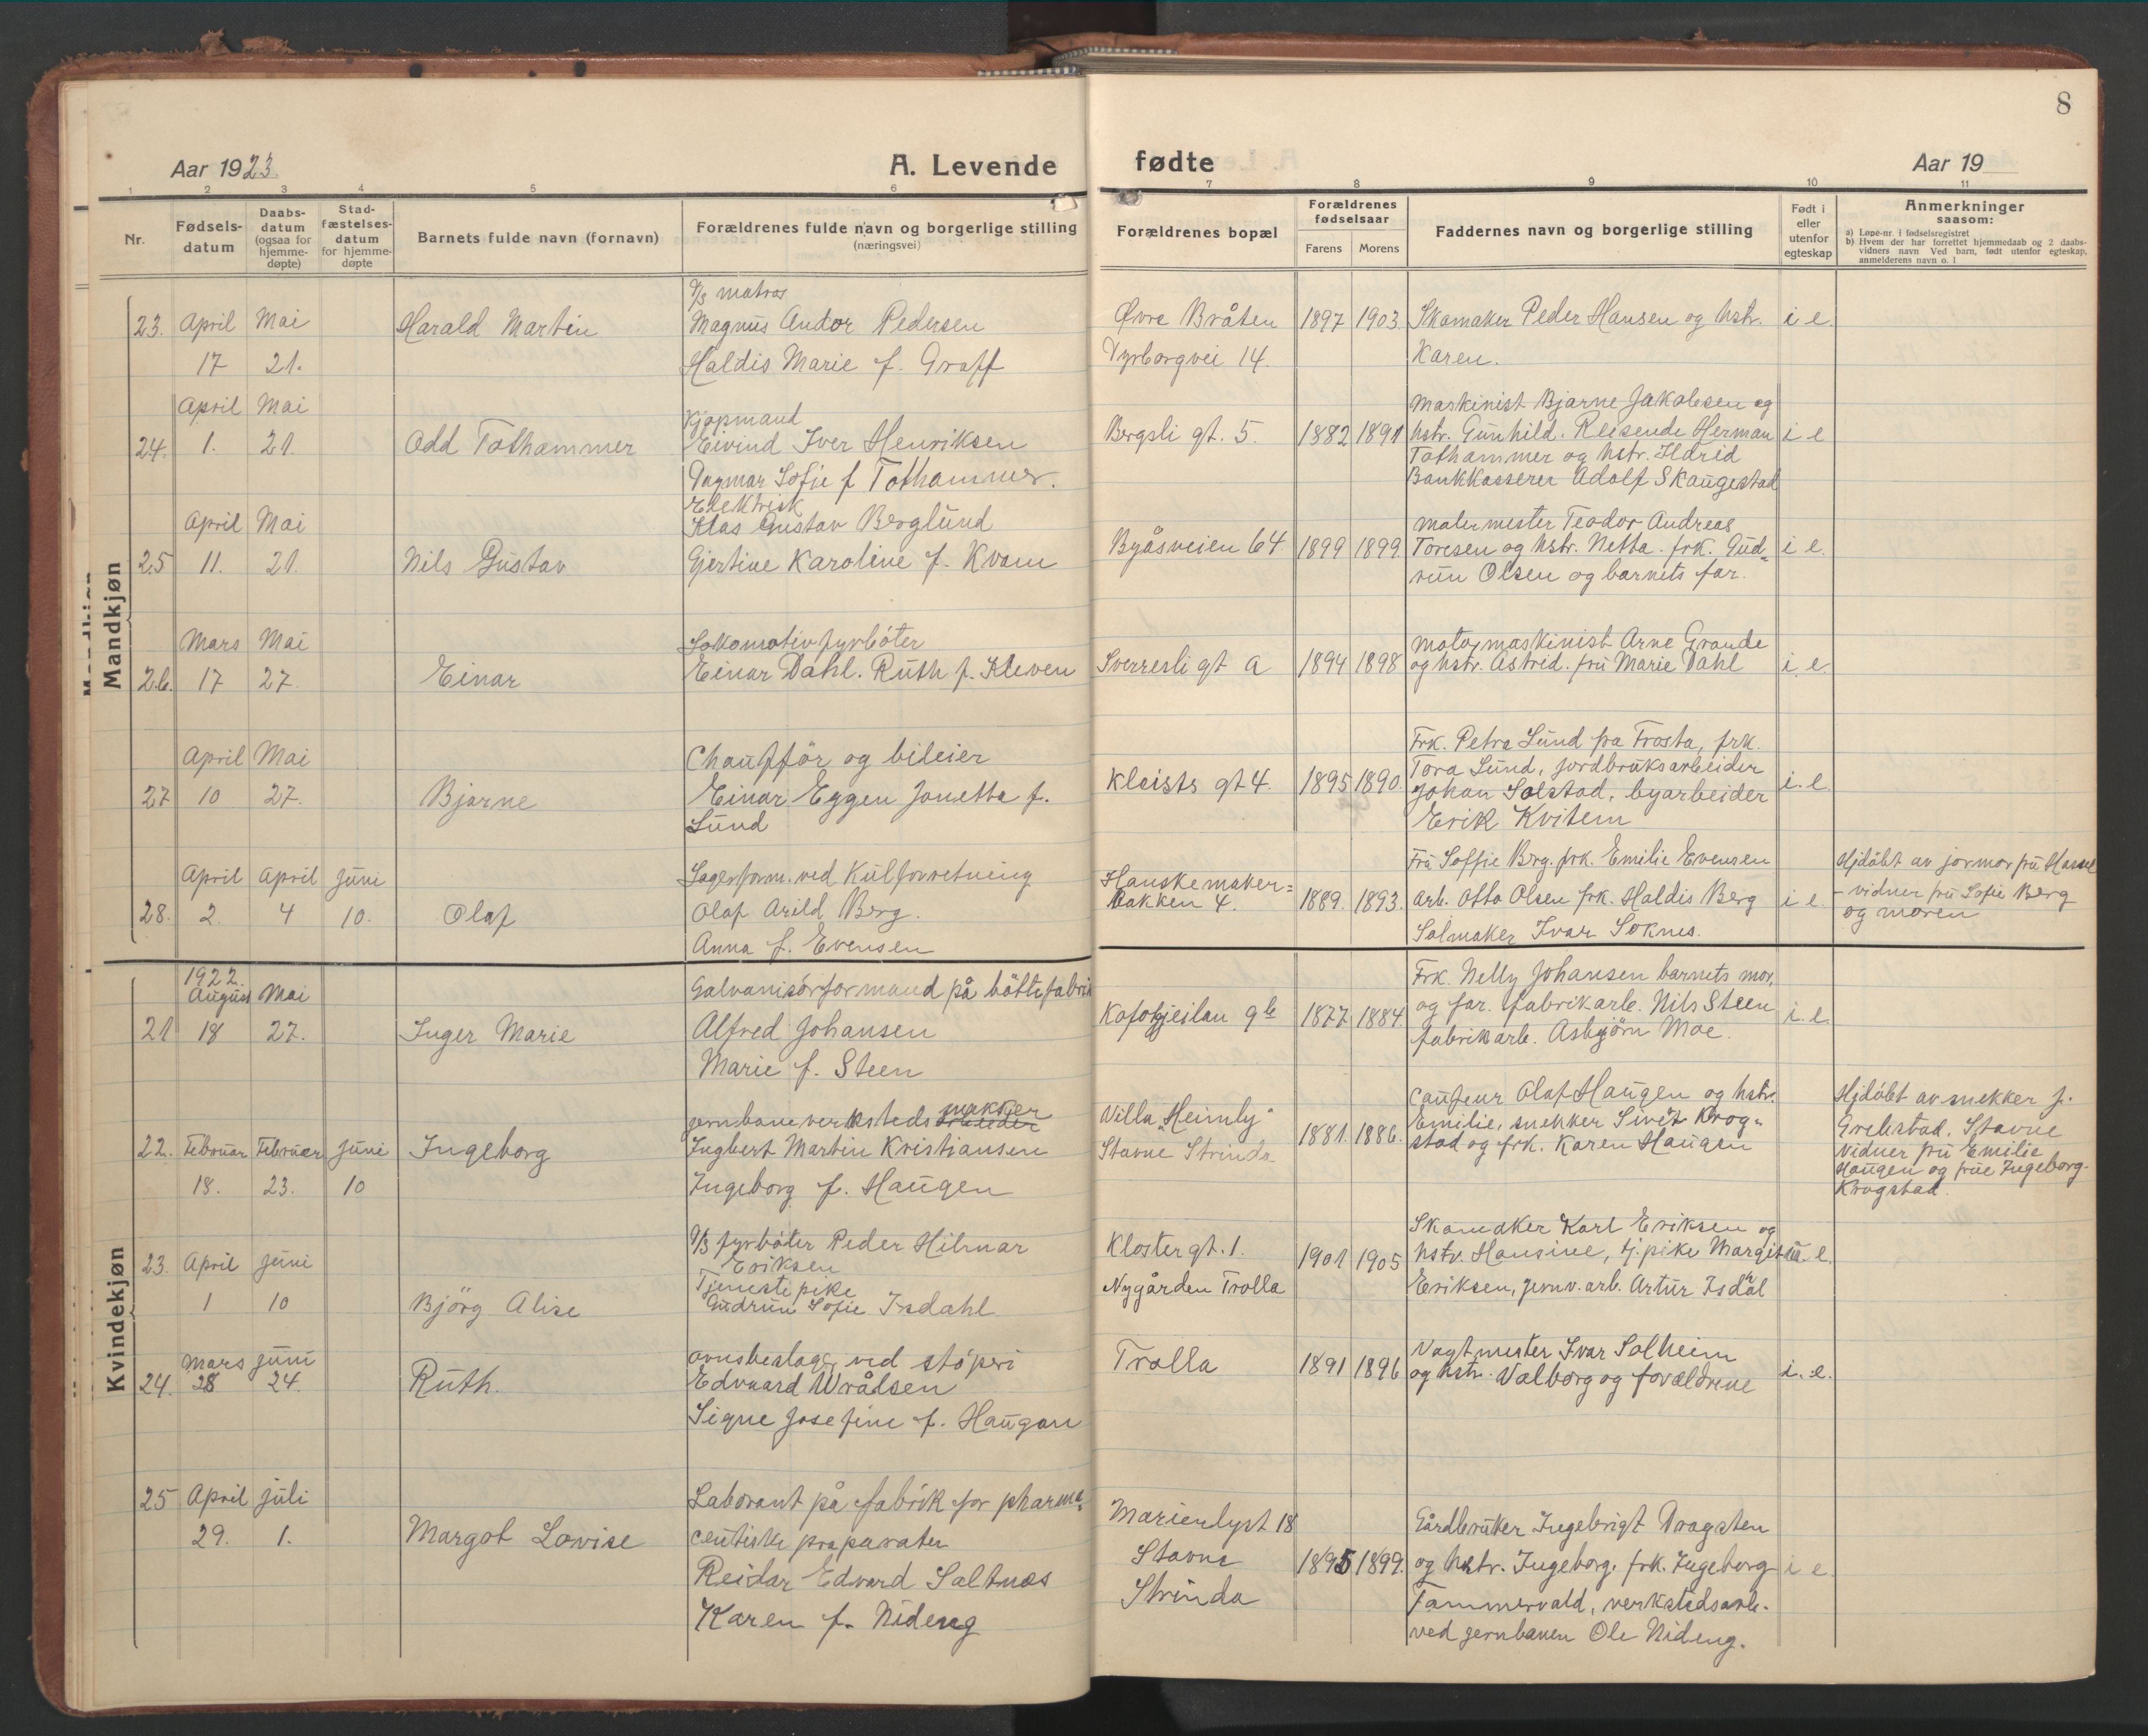 8
Aar 1923.
A. Levende
fødte
Aar 19
1 2 3 4 5 6 7 8 9 10 11
Nr.
Fødsels-
datum
Daabs-
datum
(ogsaa for
hjemme-
døpte)
Stad-
fæstelses-
datum
for hjemme-
døpte
Barnets fulde navn (fornavn)
Forældrenes fulde navn og borgerlige stilling
(næringsvei)
Forældrenes bopæl
Forældrenes
fødselsaar
Farens Morens
Faddernes navn og borgerlige stilling
Født i
eller
utenfor
egteskap
Anmerkninger
saasom:
a) Løpe-nr. i fødselsregistret
b) Hvem der har forrettet hjemmedaab og 2 daabs-
vidners navn Ved barn, født utenfor egteskap,
anmelderens navn o. l
Mandkjøn
23. April 17 Mai 21.
Harald Martin
matros
Magnus Andor Pedersen
Haldis Marie f. Graff
Øvre Bråten
Vyrborgvei 14.
1897 1903.
Skomaker Peder Hansen og hstr.
Karen.
i e.
24. April 1. Mai 21.
Odd Tothammer
Kjøpmand
Eivind Iver Henriksen
Dagmar Sofie f Tothammer.
Bergsli gt. 5.
1882 1891
Maskinist Bjarne Jakobsen og
hstr. Gunhild. Reisende Herman
Tothammer og hstr. Hdrid
Bankkasserer Adolf Skaugestad
i e
25 April 11. Mai 21.
Nils Gustav
Elektrisk
Klas Gustav Berglund
Gjertine Karoline f. Kvam
Byåsveien 64
1899 1899.
Malermester Teodor Andreas
Toresen og hstr. Netta. frk. Gud=
run Olsen og barnets far.
i e.
26. Mars 17 Mai 27.
Einar
Lokomotivfyrbøter
Einar Dahl. Ruth f. Kleven
Sverresli gt A
1894 1898
Motormaskinist Arne Grande
og hstr. Astrid. fru Marie Dahl
i. e.
27 April 10 Mai 27.
Bjarne
Chaufför og bileier
Einar Eggen Jonetta f.
Lund
Kleists gt 4.
1895 1890.
Frk. Petra Lund fra Frosta, frk.
Tora Lund, jordbruksarbeider
Johan Solstad, byarbeider
Erik Kvitem
i. e.
28. April 2. April 4 Juni 10.
Olaf
Lagerform. ved Kulforretning
Olaf Arild Berg.
Anna f. Evensen
Hanskemaker=
bakken 4.
1889. 1893.
Fru Soffie Berg. frk. Emilie Evensen
arb. Otto Olsen frk. Haldis Berg
Salmaker Ivar Soknes.
i e.
Hjdöbt av jormor fru Hassel
- vidner fru Sofie Berg
og moren
Kvindekjøn
21 1922. August 18 Mai 27.
Inger Marie
Galvanisörformand på böttefabrik
Alfred Johansen
Marie f. Steen
1877 1884.
Frk. Nelly Johansen barnets mor,
og far. fabrikarb. Nils Steen
fabrikarb. Asbjörn Moe.
i. e.
22. Februar 18. Februar 23. Juni 10
Ingeborg
jernbaneverksteds arbeider snekker
Ingbert Martin Kristiansen
Ingeborg f. Haugen
Villa "Heimly"
Stavne Strinda
1881. 1886.
Caufeur Olaf Haugen og hstr.
Emilie, snekker Sivert Krog=
stad og frk. Karen Haugen
Hjdöbt av snekker J.
Grebstad. Stavne
Vidner fru Emilie
Haugen og frue Ingeborg
Krogstad.
23. April 1 Juni 10
Björg Alise
fyrböter Peder Hilmar
Eriksen
Tjenestepike
Gudrun Sofie Isdahl
Klostergt. 1.
Nygården Trolla
1901 1905
Skomaker Karl Eriksen og
hstr. Hansine, tj.pike Margit
Eriksen, jernv. arb. Artur Isdahl
u. e.
24. Mars 28 Juni 24.
Ruth.
ovnsbeslager ved stöperi
Edvard Wrålsen
Signe Josefine f. Haugan
Trolla
1891 1896
Vagtmester Ivar Solheim
og hstr. Valborg og forældrene
i. e.
25 April 29. Juli 1.
Margot Lovise
Laborant på fabrik for pharma=
ceutiske præparater
Reidar Edvard Saltnes
Karen f. Nideng
Marienlyst 18
Stavne
Strinda
1895 1899.
Gårdbruker Ingebrigt Dragsten
og hstr. Ingeborg. frk. Ingeborg
Tammervald, verkstedsarb.
ved jernbanen Ole Nideng.
i e.